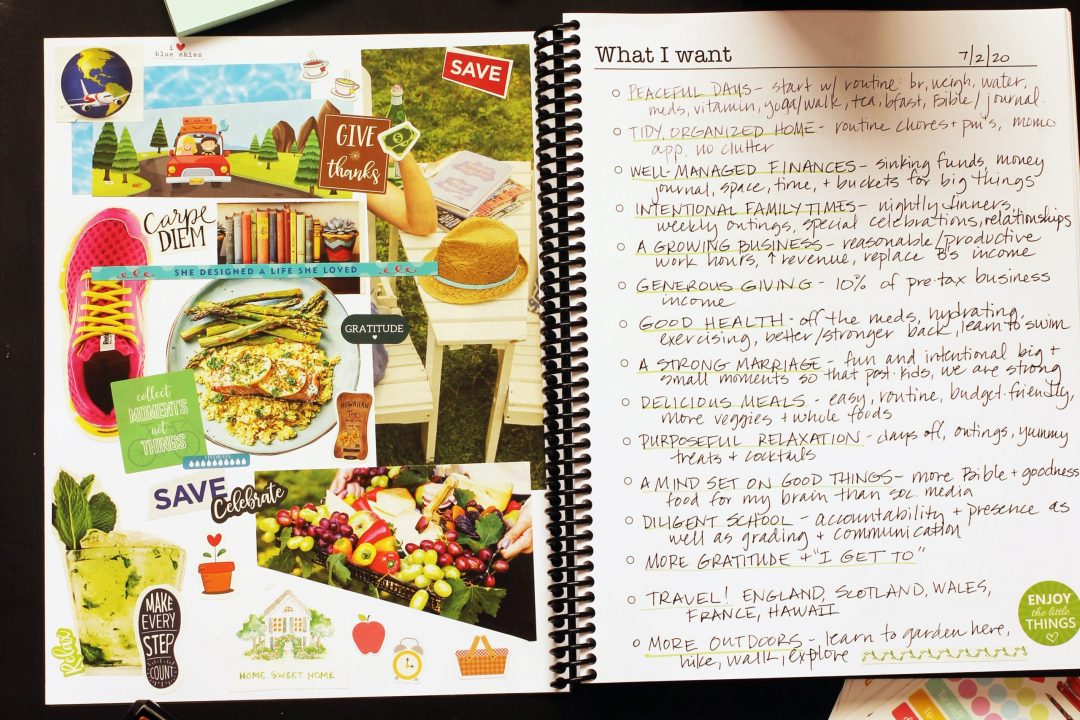 i ♥
blue skies
SAVE
GIVE
thanks
CARPE
DIEM
SHE DESIGNED A LIFE SHE LOVED
GRATITUDE
collect
MOMENTS
not
THINGS
HAWAIIAN
SAVE
Celebrate
Relax
MAKE
EVERY
STEP
COUNT
HOME SWEET HOME
What I want 7/2/20
PEACEFUL DAYS - start w/ routine: br, weigh, water,
meds, vitamin, yoga/walk, tea, bfast, Bible/journal.
TIDY, ORGANIZED HOME - routine chores + pm's, momo
app, no clutter
WELL-MANAGED FINANCES - sinking funds, money
journal, space, time, + buckets for big things
INTENTIONAL FAMILY TIMES - nightly dinners,
weekly outings, special celebrations, relationships
A GROWING BUSINESS - reasonable/productive
work hours, ↑ revenue, replace B's income
GENEROUS GIVING - 10% of pre-tax business
income
GOOD HEALTH - off the meds, hydrating,
exercising, better/stronger back, learn to swim
A STRONG MARRIAGE - fun and intentional big +
small moments so that post-kids, we are strong
DELICIOUS MEALS - easy, routine, budget-friendly,
more veggies + whole foods
PURPOSEFUL RELAXATION - days off, outings, yummy
treats + cocktails
A MIND SET ON GOOD THINGS - more Bible + goodness
food for my brain than soc. media
DILIGENT SCHOOL - accountability + presence as
well as grading + communication
MORE GRATITUDE + "I GET TO"
TRAVEL! ENGLAND, SCOTLAND, WALES,
FRANCE, HAWAII
MORE OUTDOORS - learn to garden here,
hike, walk, explore
ENJOY
the little
THINGS